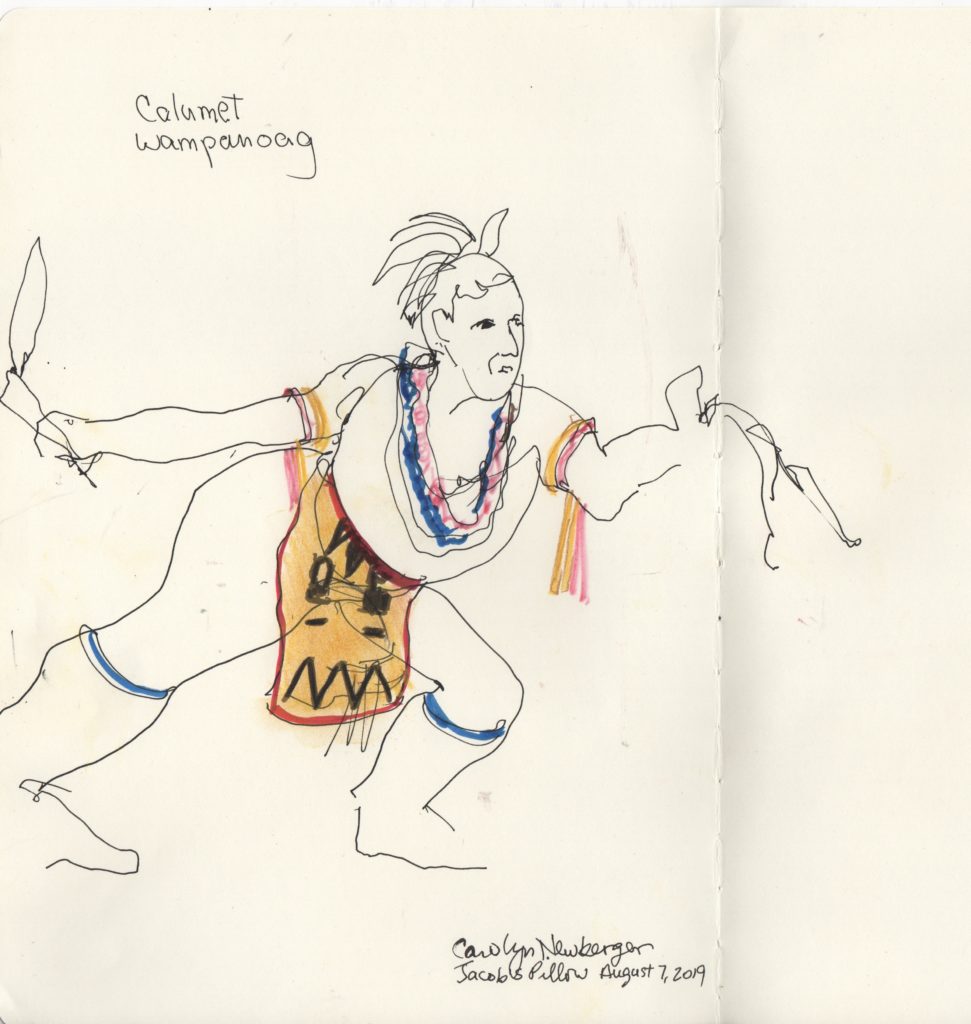 Calumet
Wampanoag
Carolyn Newberger
Jacob's Pillow August 7, 2019